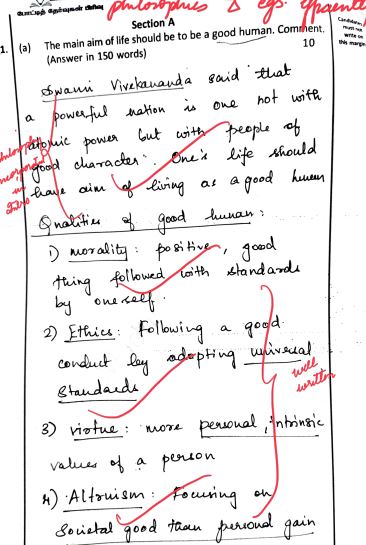 philosophies
Section A
Candidates must not write on this margin
1. (a) The main aim of life should be to be a good human. Comment.
(Answer in 150 words) 10
Swami Vivekananda said that
a powerful nation is one not with
atomic power but with people of
good character. One's life should
have aim of living as a good human
Qualities of good human:
1) morality: positive, good
thing followed with standards
by oneself.
2) Ethics: Following a good
conduct by adopting universal
standards
well written
3) virtue: more personal, intrinsic
values of a person
4) Altruism: Focusing on
Societal good than personal gain